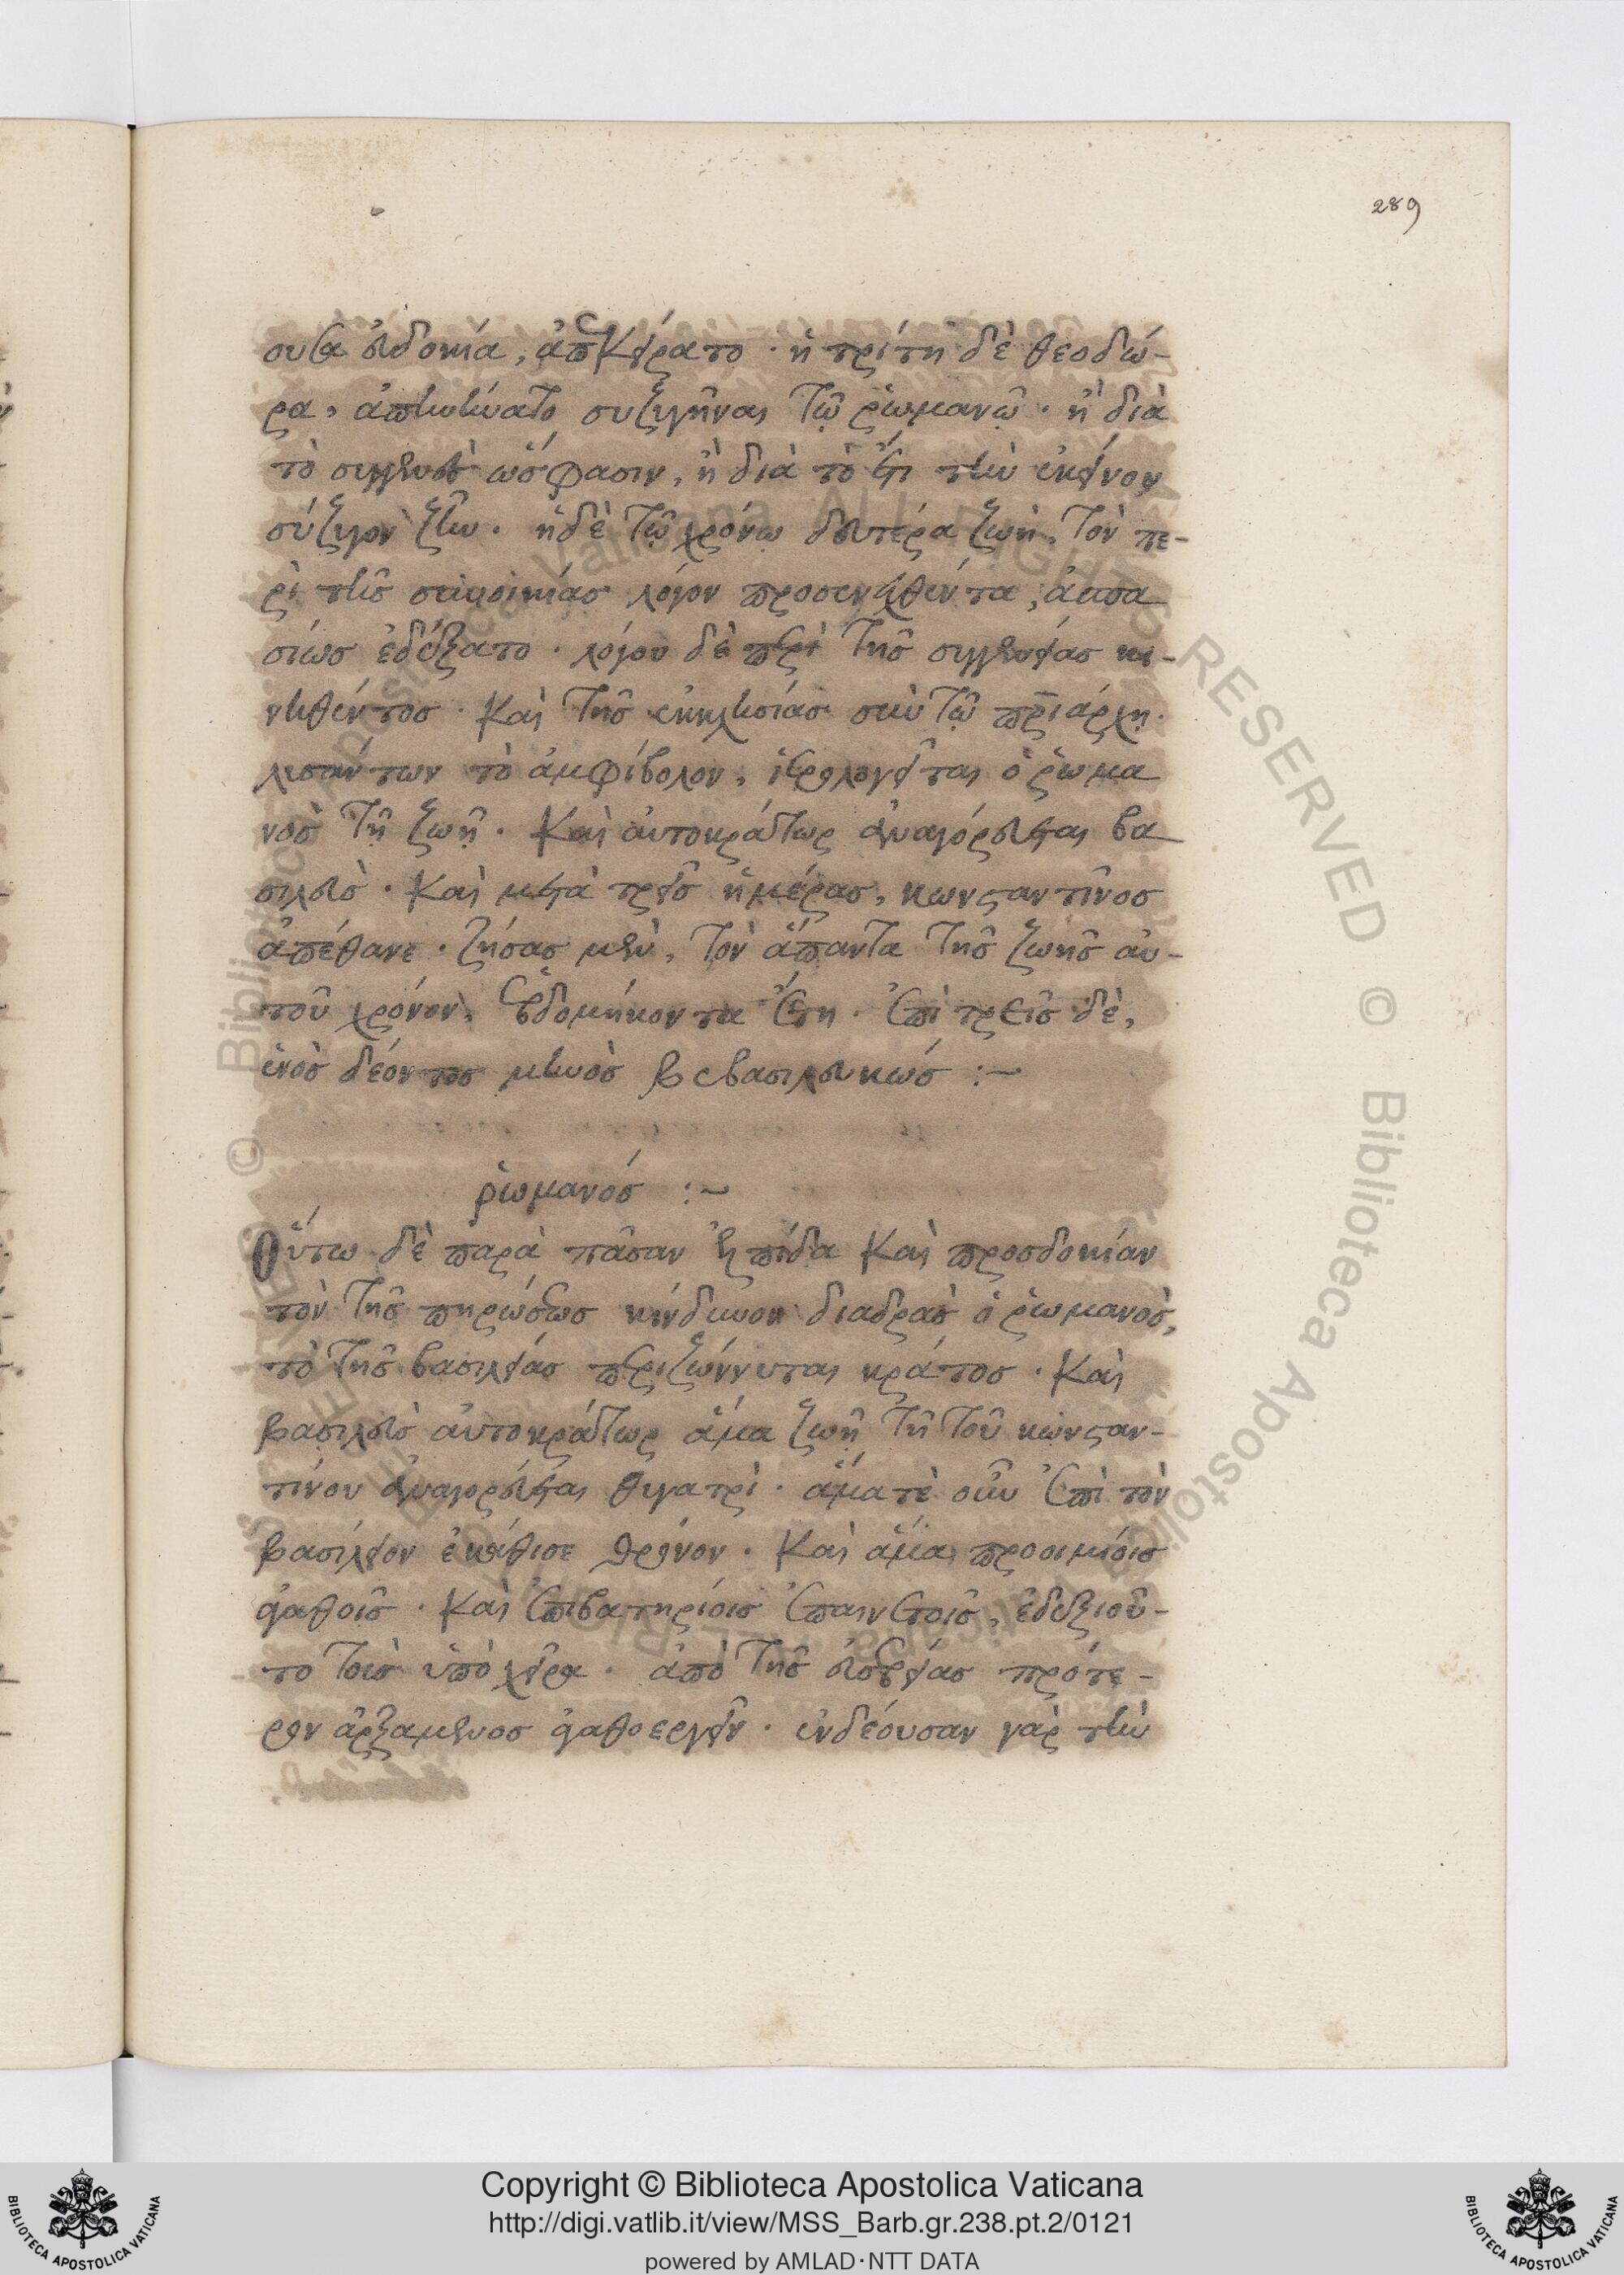 289
συ εὐδοκία, ἀπεκείρατο · ἡ τρίτη δὲ θεοδώ-
ρα, ἀπηνήνατο συζυγῆναι τῷ ῥωμανῷ · ἢ διὰ
τὸ συγγενὲς ὥς φασιν, ἢ διὰ τὸ ἔτι τὴν ἐκείνου
σύζυγον ζῆν · ἡ δὲ τῷ χρόνω δευτέρα ζωὴ, τὸν πε-
ρὶ τῆς συνοικίας λόγον προσενεχθέντα, ἀσπα
σίως ἐδέξατο · λόγου δὲ περὶ τῆς συγγενείας κι-
νηθέντος · καὶ τῆς ἐκκλησίας σὺν τῷ πριάρχῃ ·
λυσάντων τὸ ἀμφίβολον, ἱερολογεῖται ὁ ῥωμα
νὸς τῇ ζωῇ · καὶ αὐτοκράτωρ ἀναγορεύεται βα
σιλεὺς · καὶ μετὰ τρεῖς ἡμέρας, κωνσταντῖνος
ἀπέθανε · ζήσας μὲν, τὸν ἅπαντα τῆς ζωῆς αὐ-
τοῦ χρόνον, ἑβδομήκοντα ἔτη · ἐπὶ τρεῖς δὲ,
ἑνὸς δέοντος μηνὸς βεβασιλευκώς :~
ῥωμανός :~
Οὕτω δὲ παρὰ πᾶσαν ἐλπίδα καὶ προσδοκίαν
τὸν τῆς πηρώσεως κίνδυνον διαδρὰς ὁ ῥωμανὸς,
τὸ τῆς βασιλείας περιζώννυται κράτος · καὶ
βασιλεὺς αὐτοκράτωρ ἅμα ζωῇ τῇ τοῦ κωνσταν-
τίνου ἀναγορεύεται θυγατρὶ · ἅμα τὲ οὖν ἐπὶ τὸν
βασίλειον ἐκάθισε θρόνον · καὶ ἅμα προοιμίοις
ἀγαθοῖς · καὶ ἐπιβατηρίοις ἐπαινετοῖς, ἐδεξιοῦ-
το τοὺς ὑπὸ χεῖρα · ἀπὸ τῆς εὐσεβείας πρότε-
ρον ἀρξάμενος ἀγαθοεργεῖν · ἐνδέουσαν γὰρ τὴν
Copyright © Biblioteca Apostolica Vaticana
http://digi.vatlib.it/view/MSS_Barb.gr.238.pt.2/0121
powered by AMLAD·NTT DATA